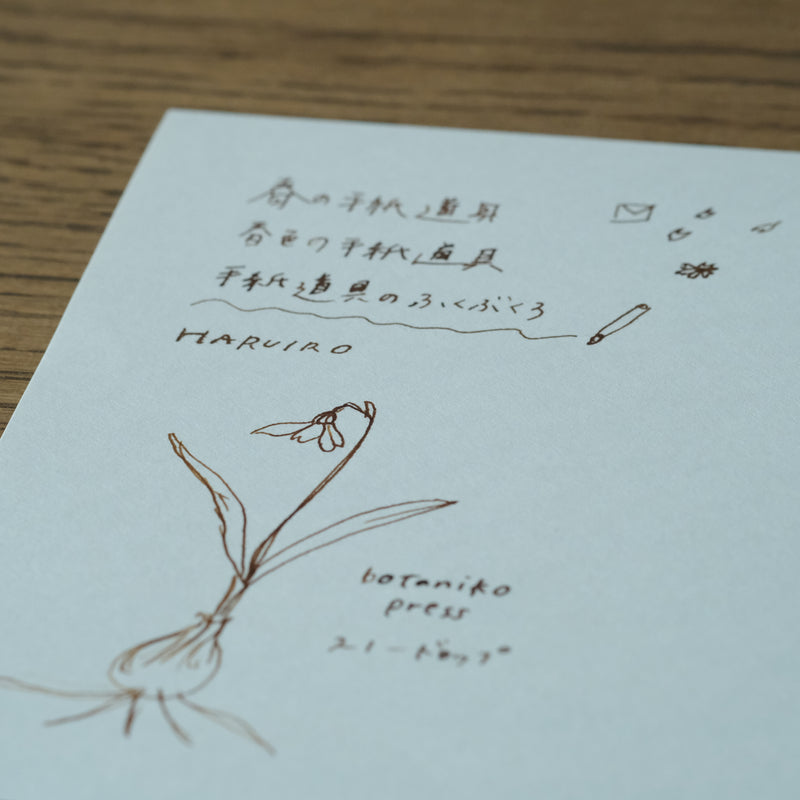 春の手紙道具
春色の手紙道具
手紙道具のふくぶくろ
HARUIRO
botaniko
press
スノードロップ